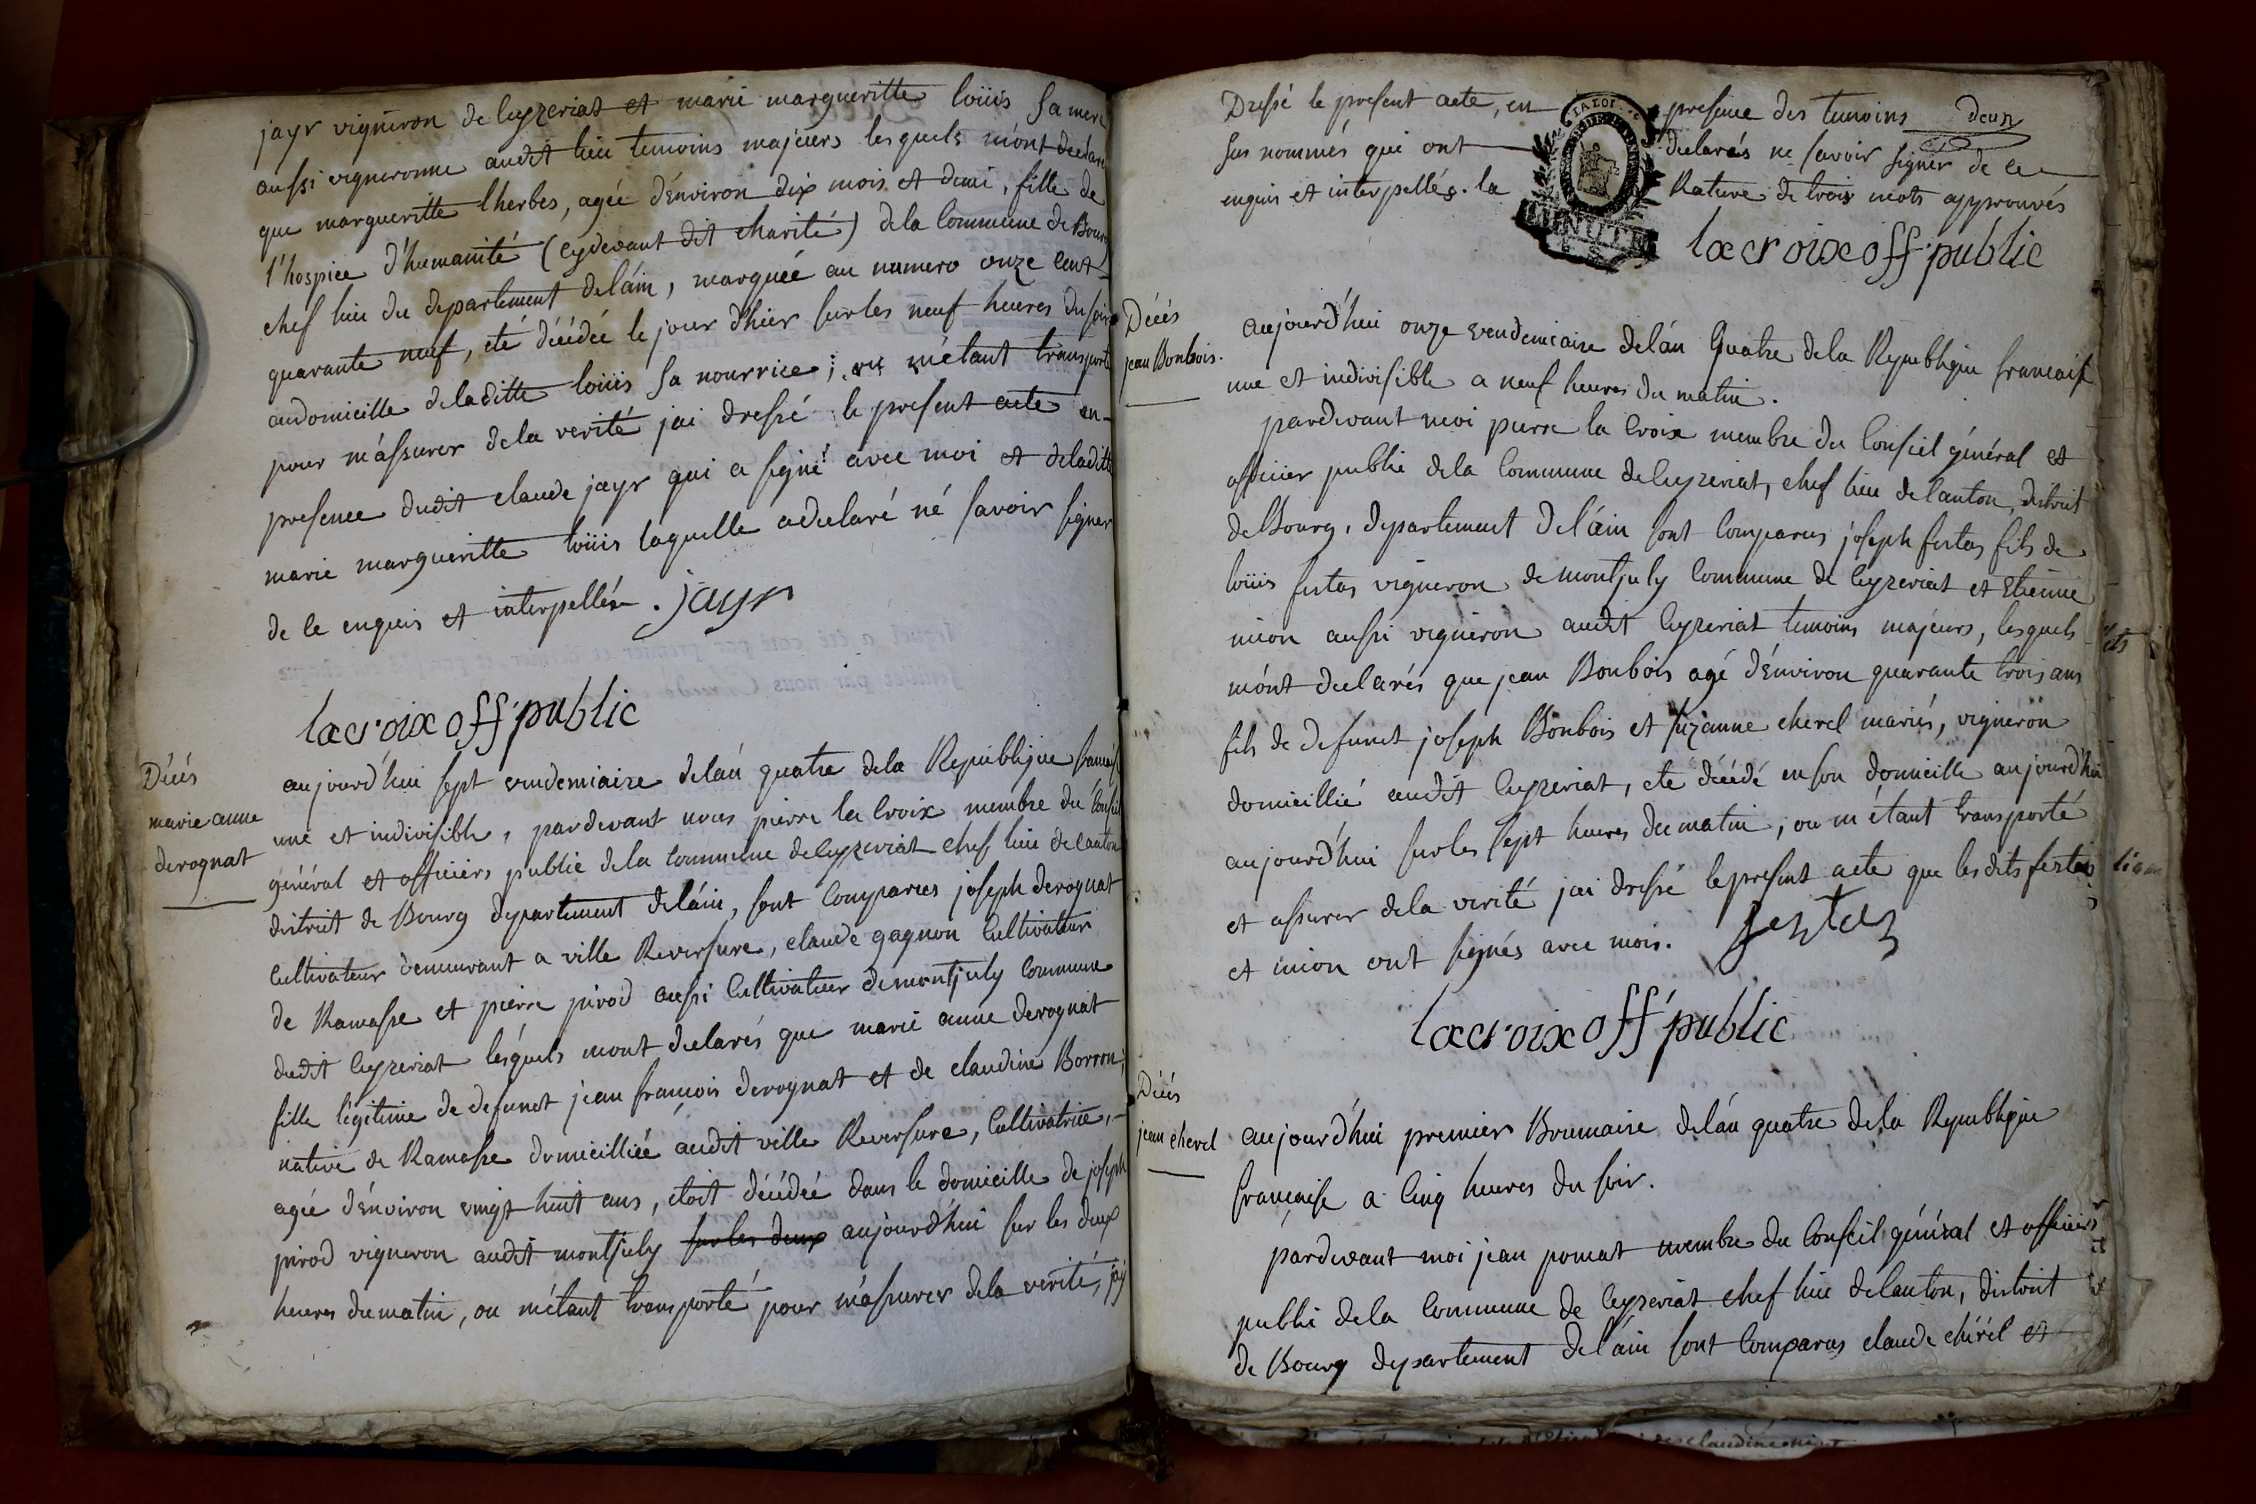 jayr vigneron de Ceyzeriat et marie margueritte loüis sa mere
aussi vigneronne audit lieu temoins majeurs lesquels m'ont declaré
que margueritte lherbes, agée d'énviron dix mois et demi, fille de
l'hospice d'humanité (cydevant dit charité) de la Commune de Bourg
chef lieu du departement de láin, marquée au numero onze cent
quarante neuf, eté décédée le jour d'hier sur les neuf heures du soir
audomicille de laditte loüis sa nourrice; ou m'étant transporté
pour m'assurer dela verité jai dressé le present acte en
presence dudit claude jayr qui a signé avec moi et deladitte
marie margueritte loüis laquelle adeclaré né savoir signer
de ce enquis et interpellée. jayr
lacroix off public
Décés
marie anne
derognat
aujourd'hui sept vendemiaire delán quatre dela Republique francaise
une et indivisible, pardevant nous pierre la Croix membre du Conseil
général et officiers public dela Commune deCeyzeriat chef lieu decanton
district de Bourg departement deláin, sont Comparus joseph derognat
Cultivateur demeurant a ville Reversure, claude gagnon Cultivateur
de Ramasse et pierre pirod aussi Cultivateur demontjuly Commune
dudit Ceyzeriat lésquels mont declarés que marie anne derognat
fille légitime de defunct jean francois derognat et de claudine Borron,
native de Ramasse domicilliée audit ville Reversure, Cultivatrice,
agée d'énviron vingt huit ans, étoit décédée dans le domicille de joseph
pirod vigneron audit montjuly sur les deux aujourd'hui sur les deux
heures dumatin, ou m'étant transporté pour m'assurer dela verité, jái
Dressé le present acte, en presence des temoins deux
sus nommés qui ont declarés ne savoir signer de ce
enquis et interpellés. la Rature de trois mots approuvés
LA LOI
lacroix off public
Décés
jean Bonbois.
aujourd'hui onze vendemiaire delán Quatre dela Republique francaise
une et indivisible a neuf heures du matin.
pardevant moi pierre la Croix membre du Conseil général et
officier public dela Commune deCeyzeriat, chef lieu deCanton, district
deBourg, departement deláin sont Comparus joseph fertas fils de
loüis fertas vigneron de montjuly Commune de Ceyzeriat et Etienne
nion aussi vigneron audit Ceyzeriat temoins majeurs, lesquels
mónt declarés que jean Bonbois agé d'énviron quarante trois ans
fils de defunct joseph Bonbois et suzanne cherel mariés, vigneron
domicillié audit Ceyzeriat, eté décédé enson domicille aujourd'hui
aujourd'hui sur les sept heures du matin; ou m'étant transporté
et assurer dela verité jai dressé le present acte que les dits fertas
et nion ont signés avec mois. fertas
lacroix off public
Décés
jean cherel
aujourd'hui premier Brumaire delán quatre dela Republique
francaise a Cinq heures du soir.
párdevant moi jean pomat membre du Conseil général et officiers
public dela Commune de Ceyzeriat chef lieu deCanton, district
de Bourg departement deláin sont Comparus claude chérel et